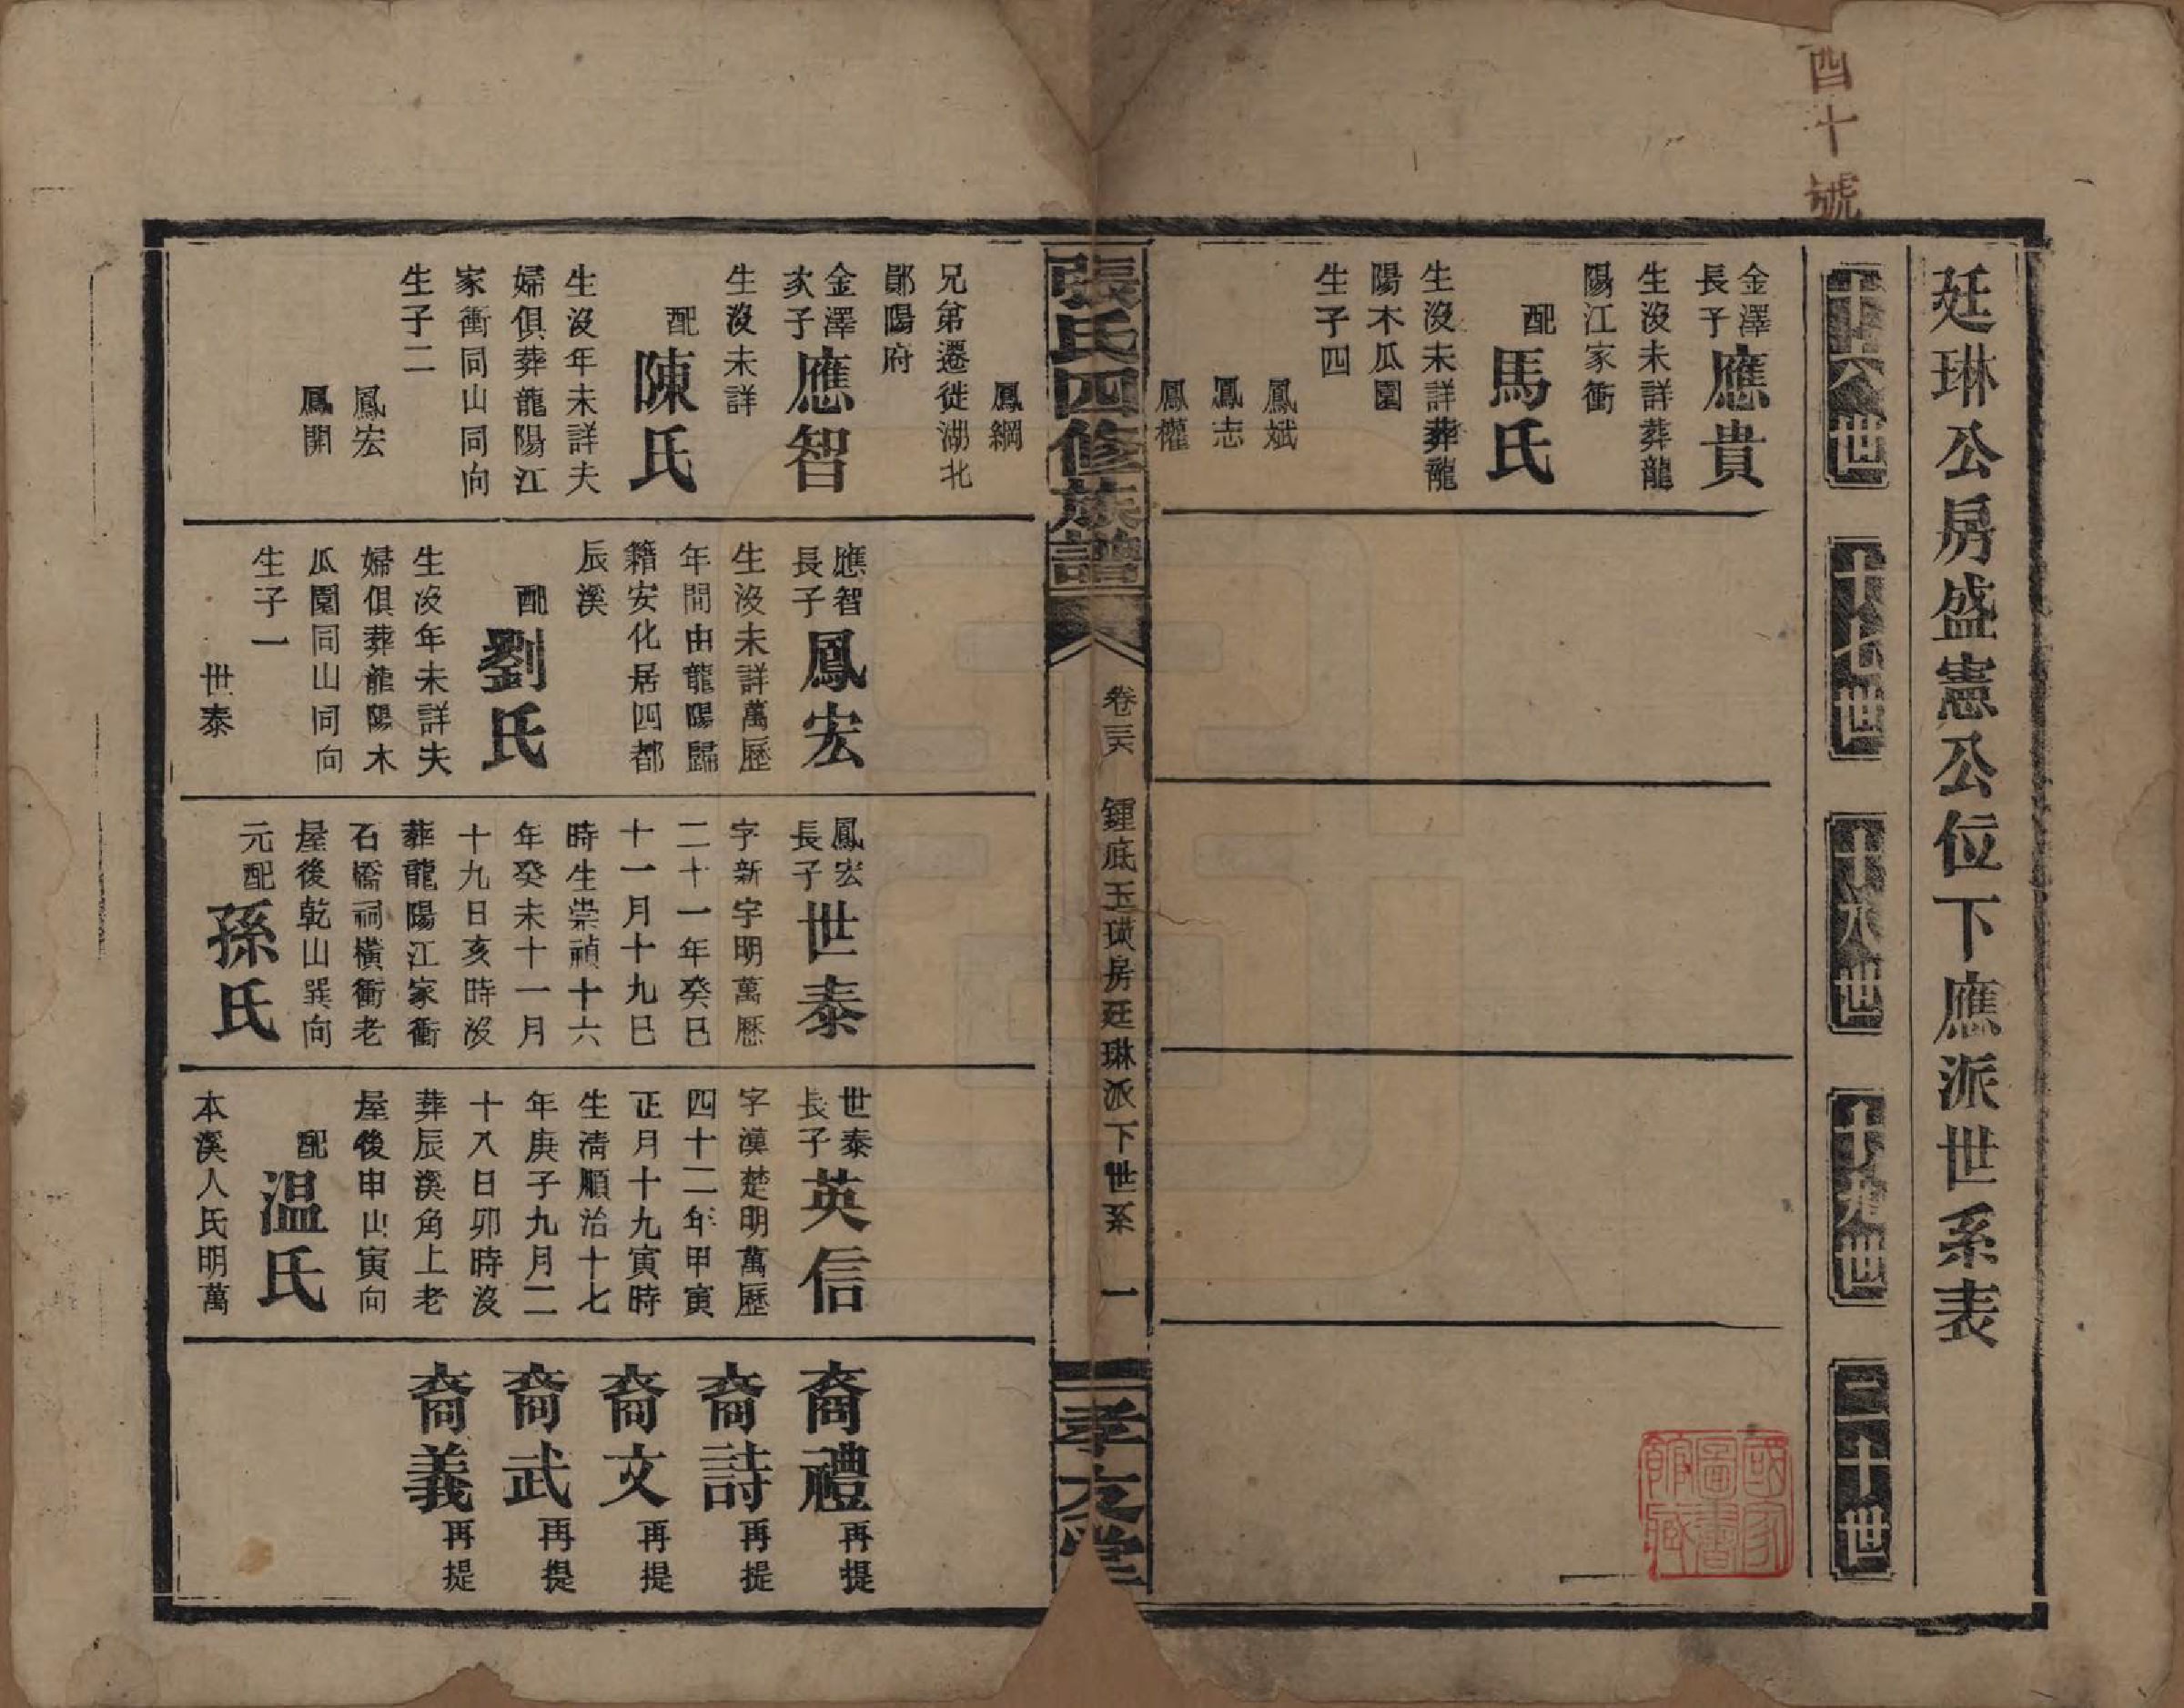 四十號
廷琳公房盛憲公位下應派世系表
十六世
十七世
十八世
十九世
二十世
金澤
長子
應貴
生沒未詳葬龍
陽江家衝
配
馬氏
生沒未詳葬龍
陽木瓜園
生子四
鳳斌
鳳志
鳳權
國家
圖書
館藏
張氏四修族譜
卷
鍾底玉璜房廷琳派下世系
一
孝友堂
鳳綱
兄弟遷徙湖北
鄖陽府
金澤
次子
應智
生沒未詳
配
陳氏
生沒年未詳夫
婦俱葬龍陽江
家衝同山同向
生子二
鳳宏
鳳開
應智
長子
鳳宏
生沒未詳萬歷
年間由龍陽歸
籍安化居四都
辰溪
配
劉氏
生沒年未詳夫
婦俱葬龍陽木
瓜園同山同向
生子一
世泰
鳳宏
長子
世泰
字新宇明萬歷
二十一年癸巳
十一月十九巳
時生崇禎十六
年癸未十一月
十九日亥時沒
葬龍陽江家衝
石橋祠橫衝老
屋後乾山巽向
元配
孫氏
世泰
長子
英信
字漢楚明萬歷
四十二年甲寅
正月十九寅時
生清順治十七
年庚子九月二
十八日卯時沒
葬辰溪角上老
屋後申山寅向
配
溫氏
本溪人氏明萬
裔禮
再提
裔詩
再提
裔文
再提
裔武
再提
裔義
再提